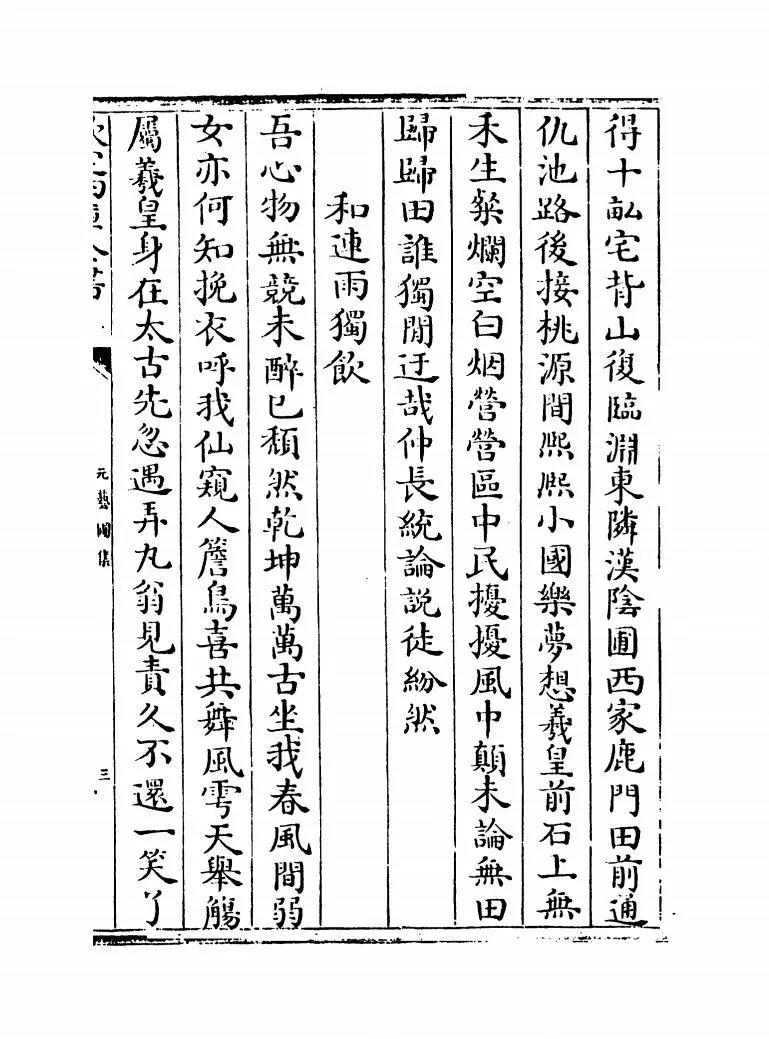 得十畝宅背山復臨淵東隣漢陰圃西家鹿門田前通
仇池路後接桃源間熙熙小國樂夢想羲皇前石上無
禾生粲爛空白烟營營區中民擾擾風中顛未論無田
歸歸田誰獨閒迂哉仲長統論説徒紛然
和連雨獨飲
吾心物無競未醉已頹然乾坤萬萬古坐我春風間弱
女亦何知挽衣呼我仙窺人簷鳥喜共舞風雩天舉觴
屬羲皇身在太古先忽遇弄丸翁見責久不還一笑了
元藝圃集
三